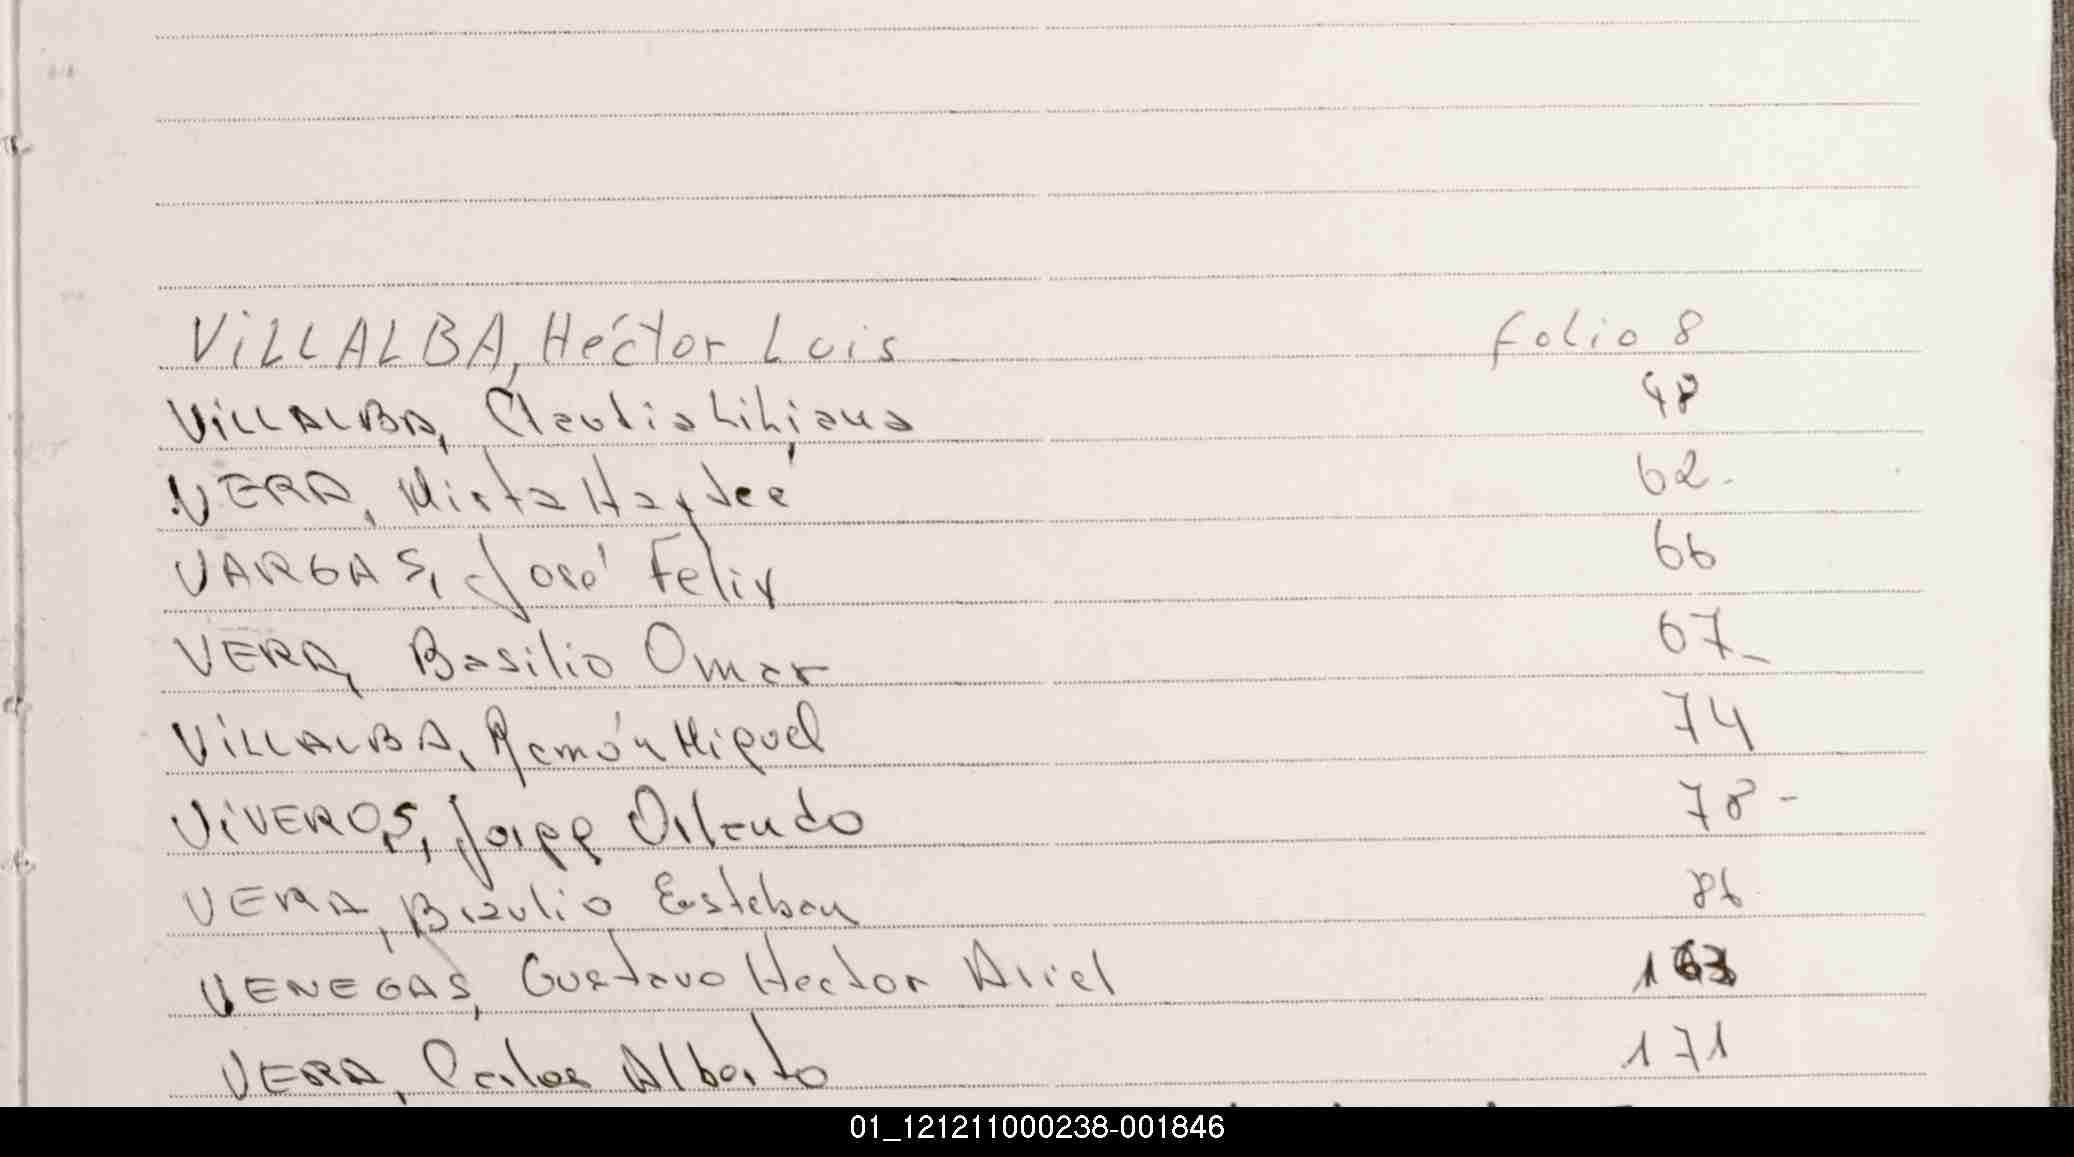 VILLALBA, Héctor Luis folio 8
VILLALBA, Claudia Liliana 48
VERA, Mirta Haydeé 62-
VARGAS, José Felix 66
VERA, Basilio Omar 67-
VILLALBA, Ramón Miguel 74
VIVEROS, Jorge Orlando 78-
VERA, Braulio Esteban 86
VENEGAS, Gustavo Hector Ariel
VERA, Carlos Alberto 171
01_121211000238-001846